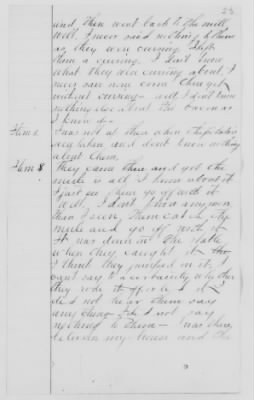 23
and then went back to the mill.
Well. I never said nothing to them
as they were cursing. I left
them a cursing. I don't know
what they were cursing about. I
never saw none come there yet
without cursing - well I don't know
nothing else about the
I know
Item
I was not at then when the
was taken and dont know nothing
about them.
Item 8.
they came there and got the
mule is all I know about it
I just see them go off with it
Well, I don't know any more
than I seen them catch the
mule and go off with it
It was down in the stable
when they caught it
I think they packed in it, I
cant say to a certainty whether
they rode it off or led it. I
did not hear them say
any thing & I did not say
nothing to them - was there
between my house and the